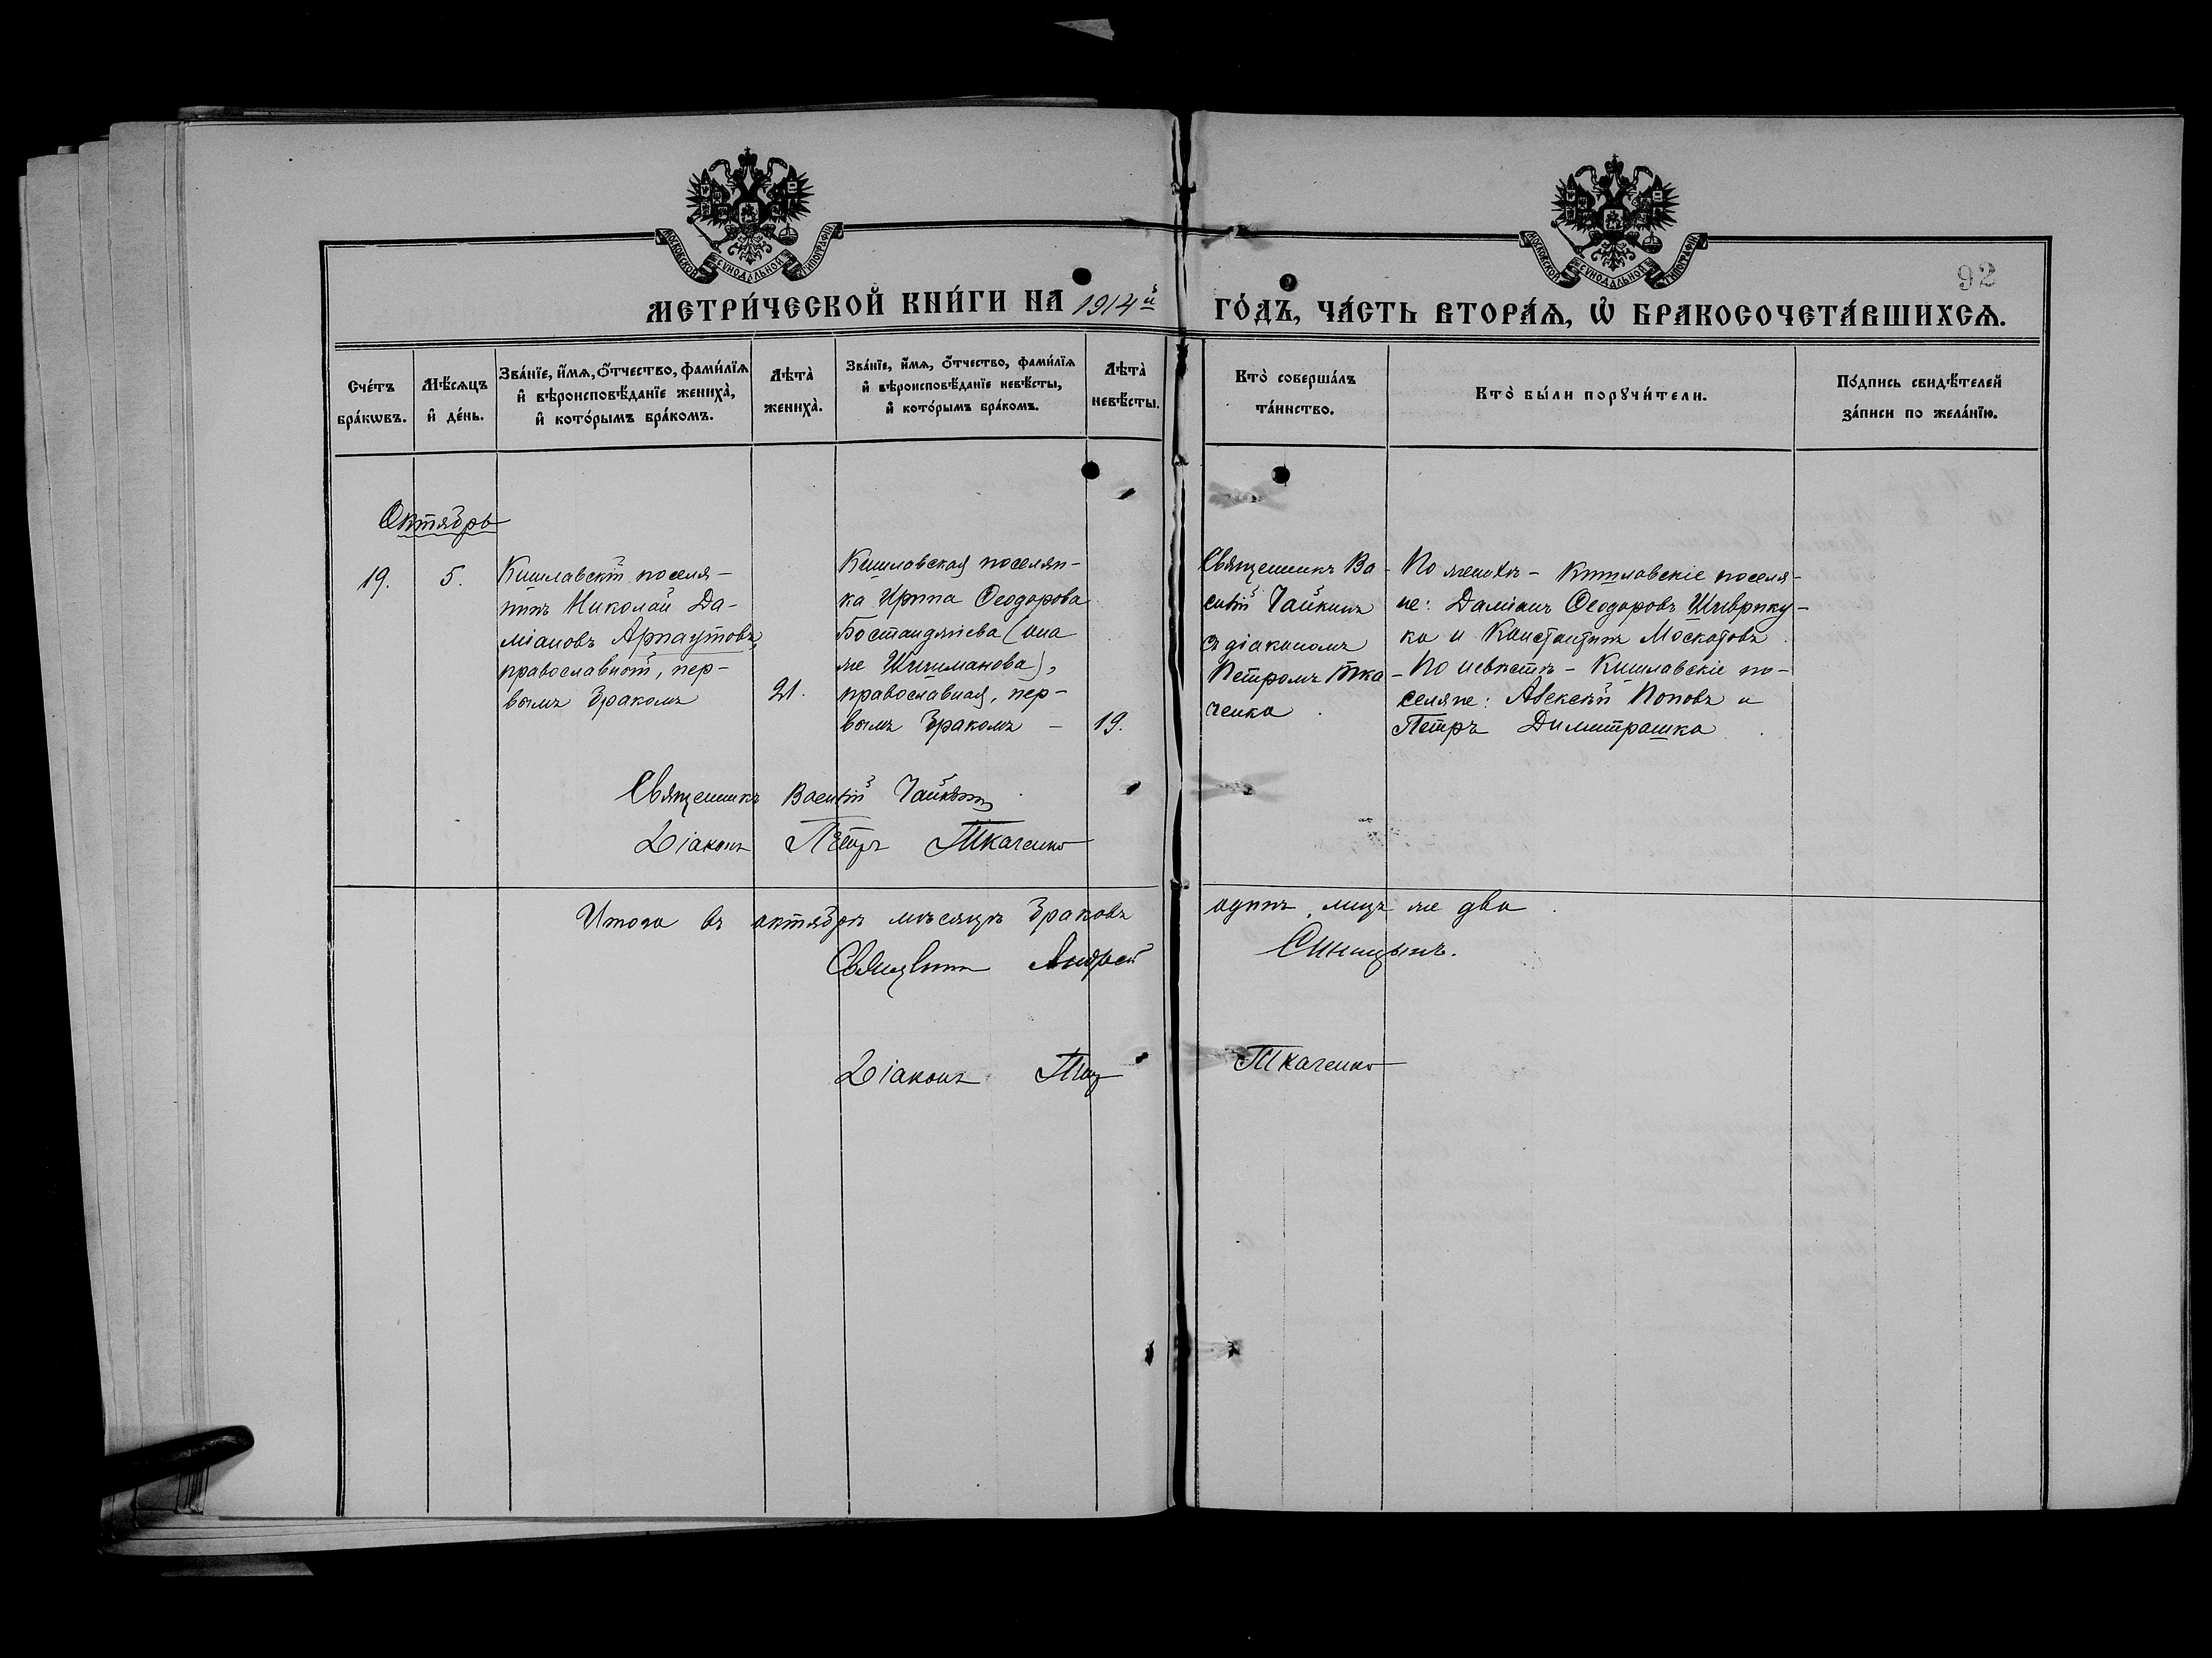 МОСКОВСКОЙ СУНОДАЛЬНОЙ ТИПОГРАФІИ
МОСКОВСКОЙ СУНОДАЛЬНОЙ ТИПОГРАФІИ
92
МЕТРИ́ЧЕСКОЙ КНИ́ГИ НА 1914й ГО́ДЪ, ЧА́СТЬ ВТОРА́Ѧ, Ѽ БРАКОСОЧЕТА́ВШИХСѦ.
Сче́тъ
бра́кѡвъ.
Мѣ́сѧцъ
и҆ де́нь.
Зва́нїе, и҆́мѧ, ѻ҆́тчество, фами́лїѧ
и҆ вѣроисповѣ́данїе жениха̀,
и҆ кото́рымъ бра́комъ.
Лѣта̀
жениха̀.
Зва́нїе, и҆́мѧ, ѻ҆́тчество, фами́лїѧ
и҆ вѣроисповѣ́данїе невѣ́сты,
и҆ кото́рымъ бра́комъ.
Лѣта̀
невѣ́сты.
Кто̀ соверша́лъ
та́инство.
Кто̀ бы́ли порꙋчи́тели.
По́дпись свидѣ́телей
за́писи по жела́нїю.
Октябрь
19.
5.
Кишлавскій поселя-
нинъ Николай Да-
міановъ Арнаутовъ,
православный, пер-
вымъ бракомъ
21.
Кишлавская поселян-
ка Ирина Ѳеодорова
Бостанджіева (она
же Шишманова),
православная, пер-
вымъ бракомъ –
19.
Священникъ Ва-
силій Чайкинъ
съ діакономъ
Петромъ Тка-
ченко.
По женихѣ – Кишлавскіе поселя-
не: Даміанъ Ѳеодоровъ
ка и Константинъ Москатовъ.
– По невѣстѣ – Кишлавскіе по-
селяне: Авксентій Поповъ и
Петръ Димитрашка.
Священникъ Василій Чайкинъ
Діаконъ Петръ Ткаченко
Итого въ октябрѣ мѣсяцѣ браковъ одинъ, лицъ же два.
Священникъ Андрей Синицынъ.
Діаконъ Ткаченко